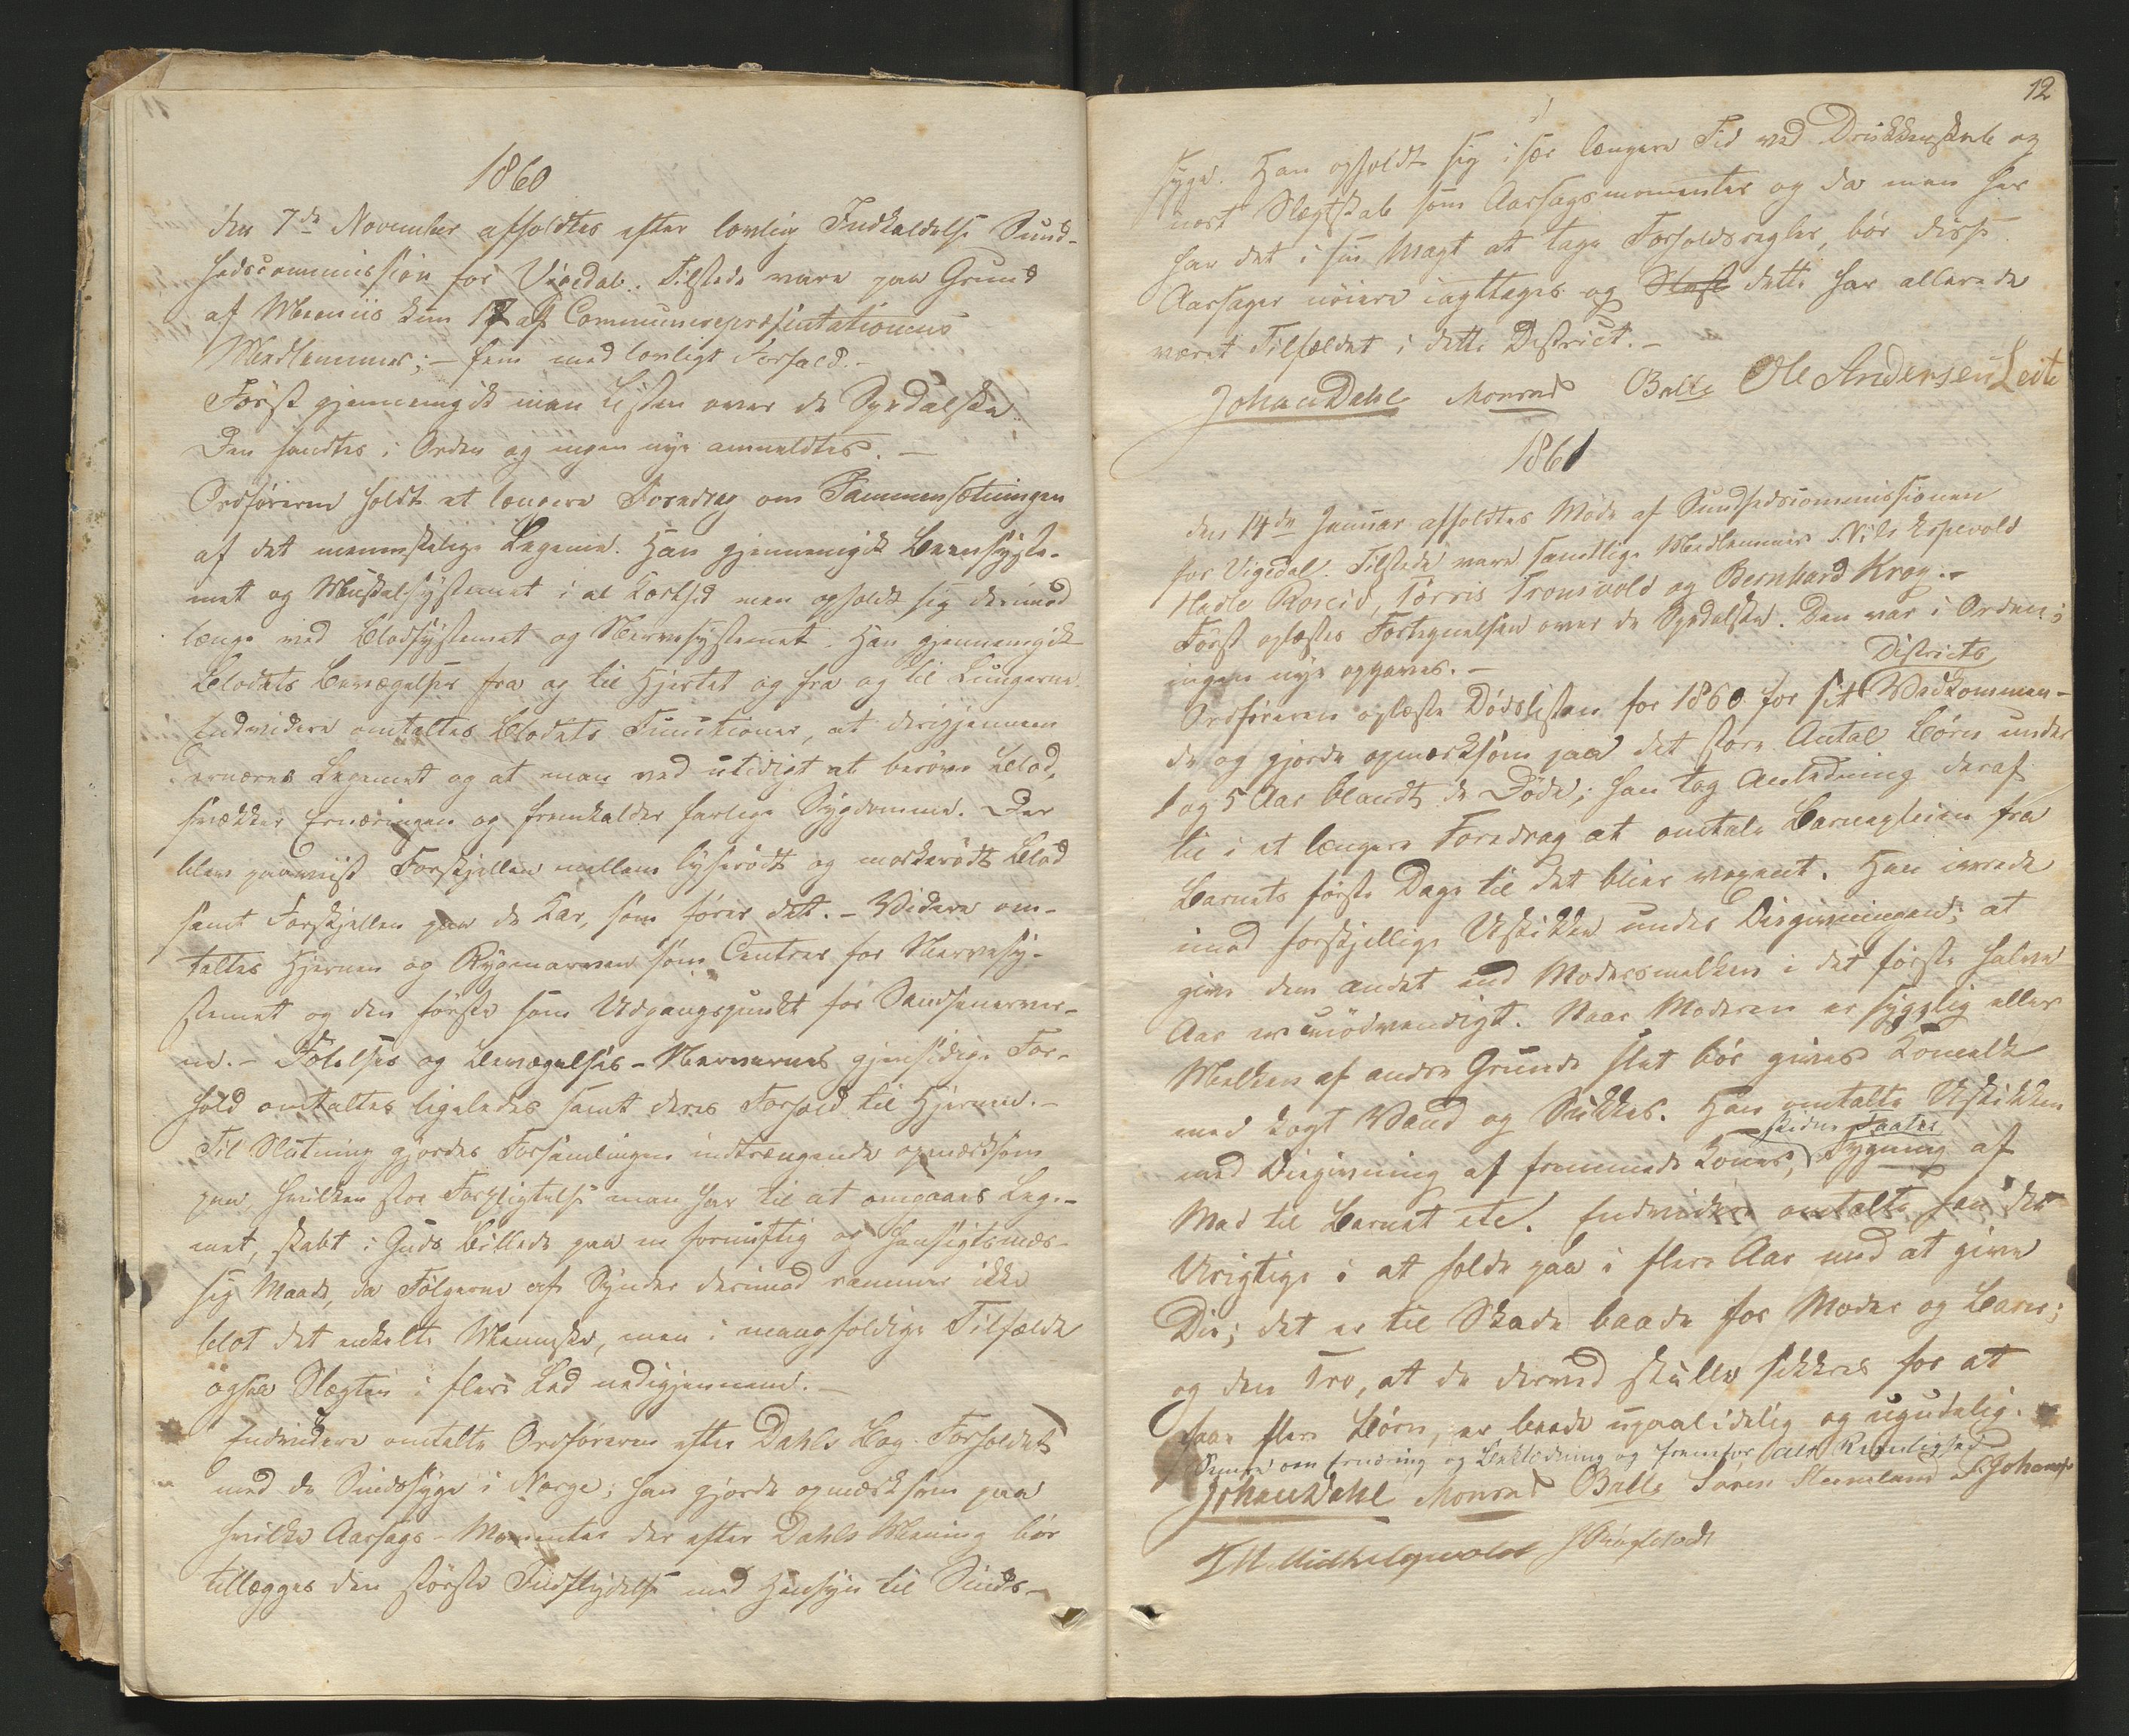 1860
den 7de November afholdtes efter lovlig Indkaldelse Sund-
hedscommission for Vigedal. Tilstede vare paa Grund
af Meeniis kun 17 af Communerepræsentationens
Medlemmer; – fem med lovligt Forfald. –
Først gjennemgik man Listen over de Spedalske.
Den fandtes i Orden og ingen nye anmeldtes. –
Ordføreren holdt et længere Foredrag om Sammensætningen
af det menneskelige Legeme. Han gjennemgik Beensyste-
met og Muskelsystemet i al Korthed men opholdt sig derimod
længe ved Blodsystemet og Nervesystemet. Han gjennemgik
Blodets Bevægelser fra og til Hjertet og fra og til Lungerne.
Endvidere omtaltes Blodets Functioner, at derigjennem
ernæres Legemet og at man ved utidigt at berøve Blod,
svækker Ernæringen og fremkalder farlige Sygdomme. Der
blev paaviist Forskjellen mellem lyserødt og mørkerødt Blod
samt Forskjellen paa de Kar, som fører det. – Videre om-
taltes Hjernen og Rygmarven som Centrer for Nervesy-
stemet og den første som Udgangspunkt for Sandsenerver-
ne. – Følelses og Bevægelses-Nervernes gjensidige For-
hold omtaltes ligeledes samt deres Forhold til Hjernen. –
Til Slutning gjordes Forsamlingen indtrængende opmærksom
paa, hvilken stor Forpligtelse man har til at omgaaes Lege-
met, skabt i Guds Billede paa en fornuftig og hensigtsmæs-
sig Maade, da Følgerne af Synder derimod rammer ikke
blot det enkelte Menneske, men i mangfoldige Tilfælde
ogsaa Slægten i flere Led nedigjennem. –
Endvidere omtalte Ordføreren efter Dahls Bog Forholdet
med de Sindssyge i Norge; han gjorde opmærksom paa
hvilke Aarsags-Momenter der efter Dahls Mening bør
tillægges den største Indflydelse med Hensyn til Sinds-
12
syge. Han opholdt sig især længere Tid ved Drukkenskab og
nært Slægtskab som Aarsagsmomenter og da man her
har det i sin Magt at tage Forholdsregler, bør disse
Aarsager nøiere iagttages og dette har allerede
været Tilfældet i dette District. –
Johan Dahl Monrad Balle Ole Andersen Leite
1861
den 14de Januar afholdtes Møde af Sundhedscommissionen
for Vigedal. Tilstede vare samtlige Medlemmer Nils Espevold
Hadle Roscid, Tørris Tronsvold og Bernhard Krog. –
Først oplæstes Fortegnelsen over de Spedalske. Den var i Orden;
ingen nye opgaves. –
Districts
Ordføreren oplæste Dødslisten for 1860 for sit Vedkommen-
de og gjorde opmærksom paa det store Antal Børn under
1 og 5 Aar blandt de Døde; han tog Anledning deraf
til i et længere Foredrag at omtale Barnepleien fra
Barnets første Dage til det bliver voxent. Han ivrede
imod forskjellige Uskikke under Diegivningen; at
give dem andet end Modersmelken i det første halve
Aar er unødvendigt. Naar Moderen er sygelig eller
Melken af andre Grunde slet bør gives Komelk
med kogt Vand og Sukker. Han omtalte Uskikken
skidne Taater
med Diegivning af fremmede Koner, Tygning af
Mad til Barnet etc. Endvidere omtalte han det
Urigtige i at holde paa i flere Aar med at give
Die; det er til Skade baade for Moder og Barn;
og den Tro, at de derved skulle sikkres for at
faae flere Børn, er baade upaalidelig og ugudelig.
Senere om Ernæring og Beklædning og fremfor Alt Reenlighed
Johan Dahl Monrad Balle Søren Steensland S. Johans